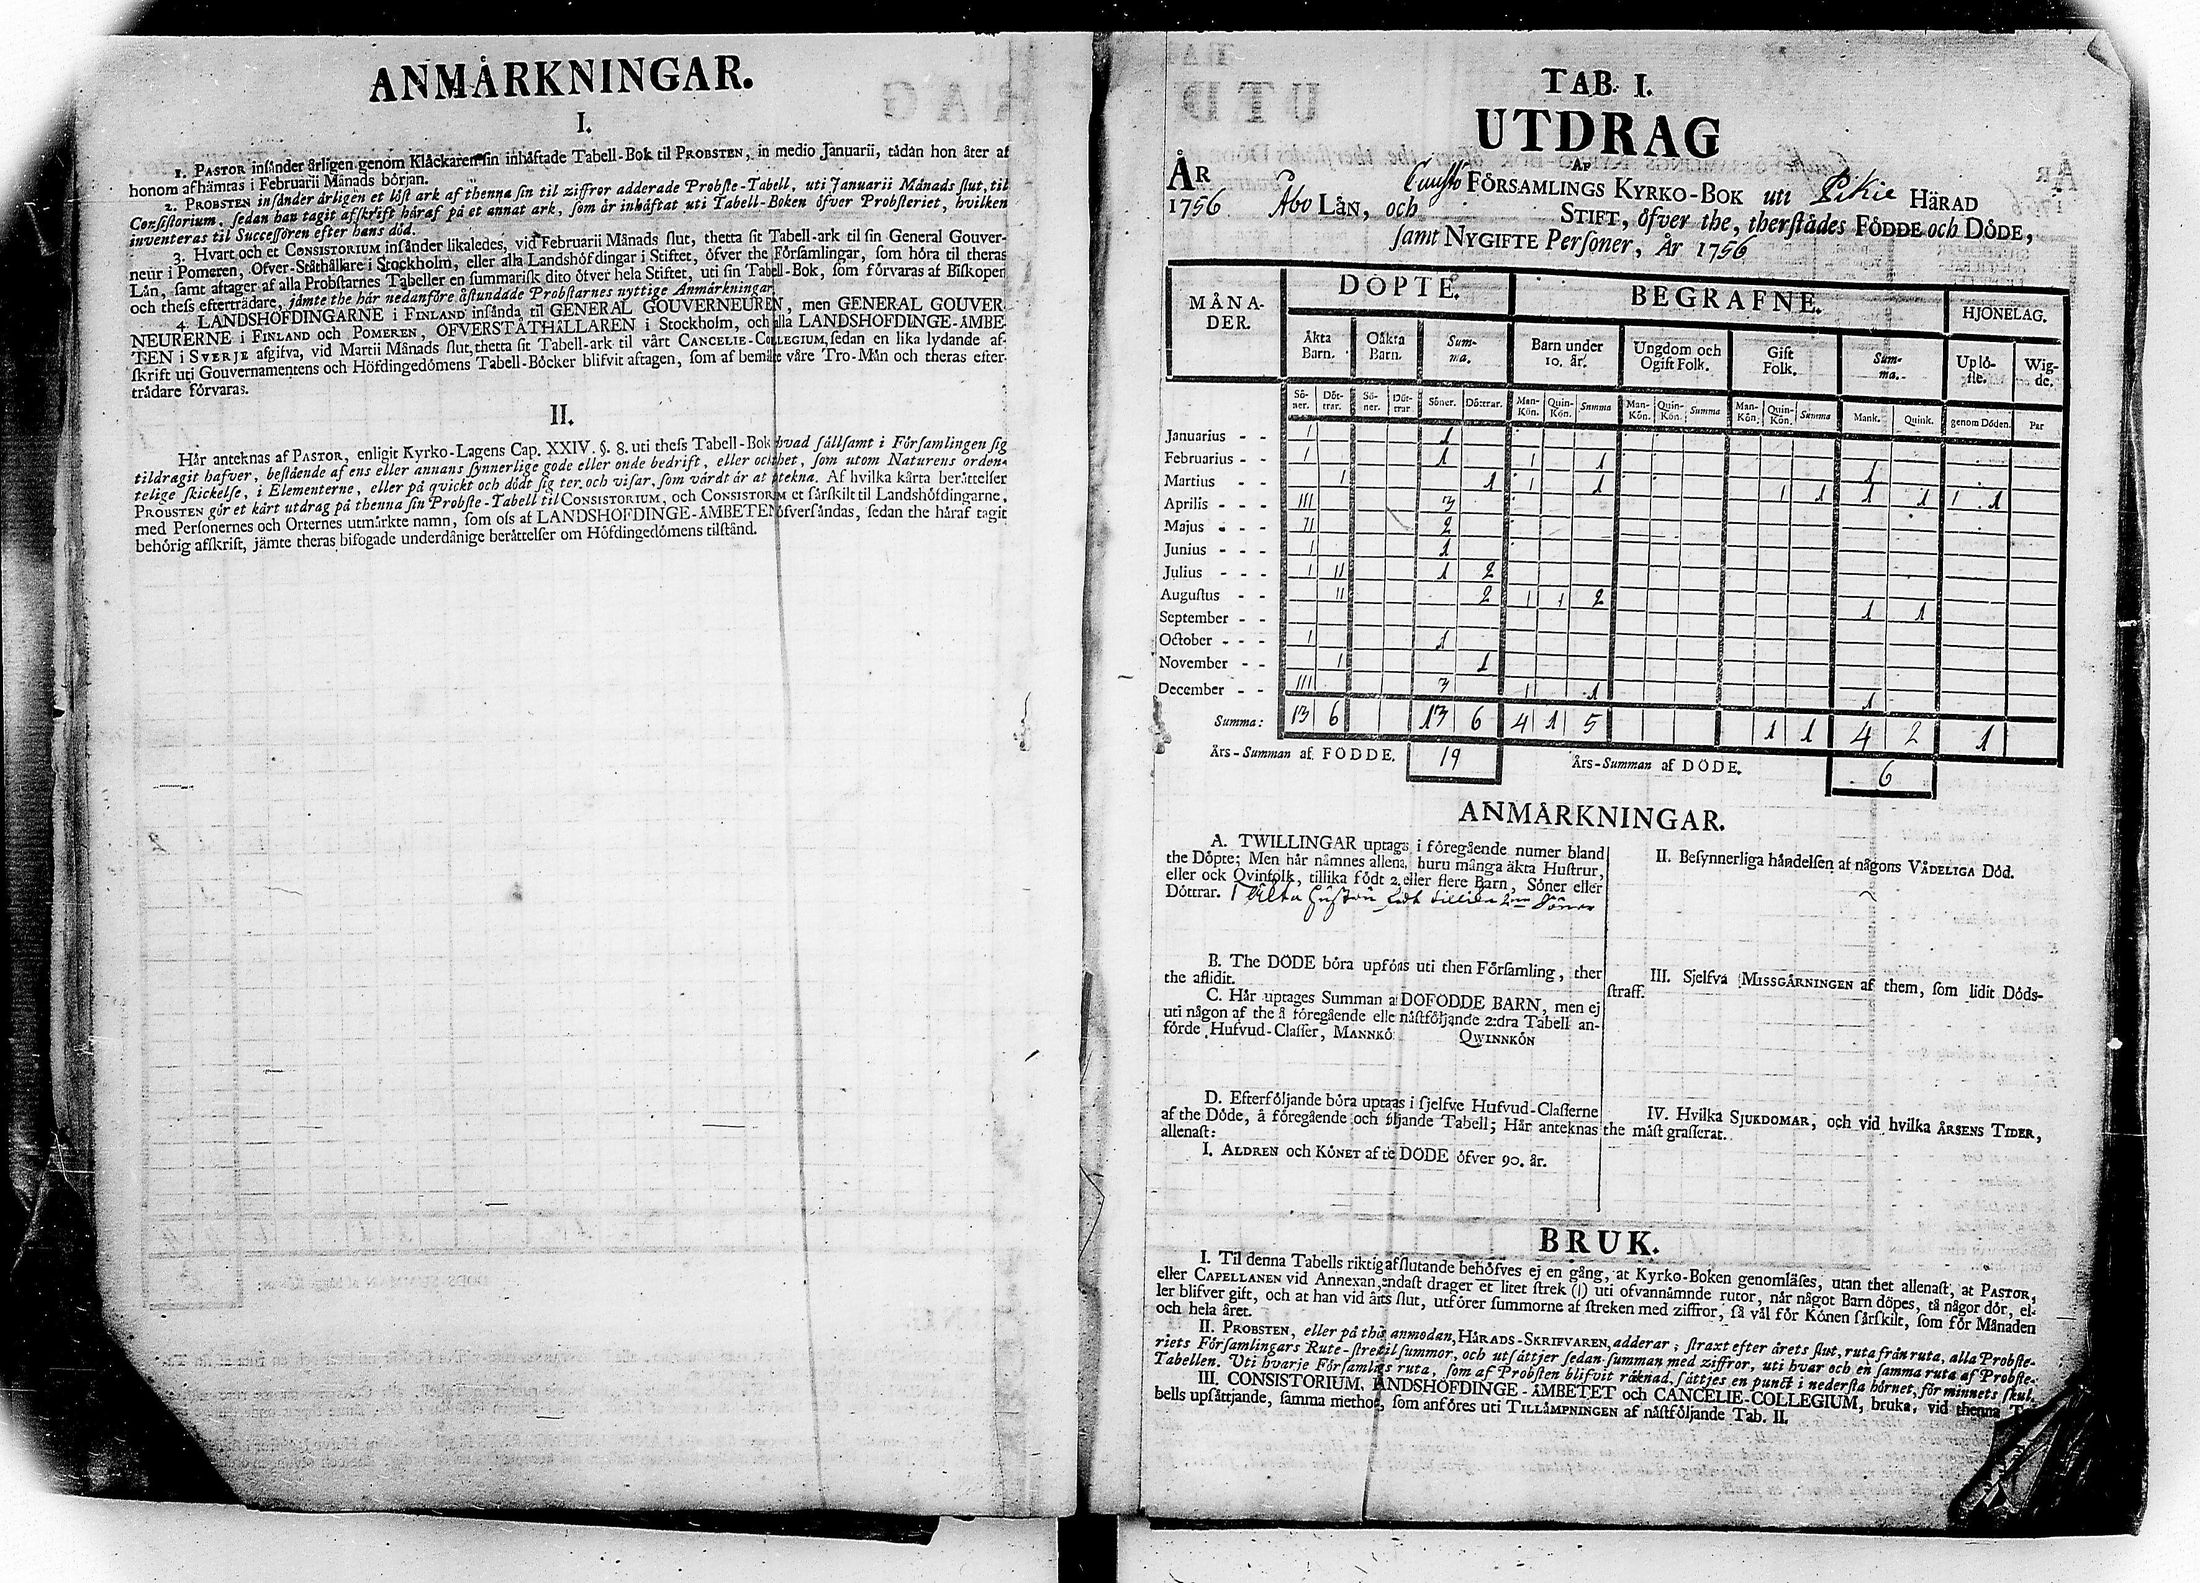 ANMÅRKNINGAR.
I.
1. PASTOR insånder årligen genom Klåckaren sin inhåftade Tabell-Bok til PROBSTEN, in medio Januarii, tådan hon åter af
honom afhämtas i Februarii Månads början.
2. PROBSTEN insånder årligen et löst ark af thenna sin til ziffror adderade Probste-Tabell, uti Januarii Månads slut, til
Consistorium, sedan han tagit afskrift håraf på et annat ark, som år inhåftat uti Tabell-Boken öfver Probsteriet, hvilken
inventeras til Successoren efter hans död.
3. Hvart och et CONSISTORIUM insånder likaledes, vid Februarii Månads slut, thetta sit Tabell-ark til sin General Gouver-
neur i Pomeren, Öfver-Ståthållare i Stockholm, eller alla Landshöfdingar i Stiftet, öfver the Församlingar, som höra til theras
Lån, samt aftager af alla Probstarnes Tabeller en summarisk dito öfver hela Stiftet, uti sin Tabell-Bok, som förvaras af Biskopen
och thess efterträdare, jämte the hår nedanföre åstundade Probstarnes nyttige Anmårkningar.
4. LANDSHÖFDINGARNE i FINLAND insånda til GENERAL GOUVERNEUREN, men GENERAL GOUVER-
NEURERNE i FINLAND och POMEREN, ÖFVERSTÅTHÅLLAREN i Stockholm, och alla LANDSHÖFDINGE-ÅMBE-
TEN i SVERJE afgifva, vid Martii Månads slut, thetta sit Tabell-ark til vårt CANCELIE-COLLEGIUM, sedan en lika lydande af-
skrift uti Gouvernamentens och Höfdingedömens Tabell-Böcker blifvit aftagen, som af bemälte våre Tro-Mån och theras efter-
trådare förvaras.
II.
Hår anteknas af PASTOR, enligit Kyrko-Lagens Cap. XXIV. §. 8. uti thess Tabell-Bok hvad sållsamt i Församlingen sig
tildragit hafver, bestående af ens eller annans synnerlige gode eller onde bedrift, eller och thet, som utom Naturens orden-
telige skickelse, i Elementerne, eller på qvickt och dödt sig ter och visar, som vårdt år at påtekna. Af hvilka kårta beråttelser
PROBSTEN gör et kårt utdrag på thenna sin Probste-Tabell til CONSISTORIUM, och CONSISTORIUM et sårskilt til Landshöfdingarne,
med Personernes och Orternes utmårkte namn, som oss af LANDSHÖFDINGE-ÅMBETEN öfversåndas, sedan the håraf tagit
behörig afskrift, jämte theras bifogade underdånige beråttelser om Höfdingedömens tilstånd.
TAB. I.
UTDRAG
AF
ÅR Cuusto FÖRSAMLINGS KYRKO-BOK uti Pikie HÄRAD
1756 Åbo LÅN, och STIFT, öfver the, therstådes FÖDDE och DÖDE,
samt NYGIFTE Personer, År 1756
MÅNA-DER. DÖPTE. BEGRAFNE. HJONELAG.
Åkta Barn. Oåkta Barn. Sum-ma. Barn under 10. år. Ungdom och Ogift Folk. Gift Folk. Sum-ma. Uplö-ste. Wig-de.
Sö-ner. Döt-trar. Sö-ner. Döt-trar Söner. Döttrar. Man-Kön. Quin-Kön. Summa Man-Kön. Quin-Kön. Summa Man-Kön. Quin-Kön. Summa Mank. Quink. genom Döden. Par
Januarius - - I 1
Februarius - - I 1 I 1
Martius - - I 1 I 1 1
Aprilis - - - III 3 1 1 1 1 1 1
Majus - - - II 2
Junius - - - I 1
Julius - - - I II 1 2
Augustus - - II 2 I I 2
September - - 1 1
October - - - I 1
November - - I 1
December - - III 3 I 1 1
Summa: 13 6 13 6 4 1 5 1 1 4 2 1
Års-Summan af FÖDDE. 19 Års-Summan af DÖDE. 6
ANMÅRKNINGAR.
A. TWILLINGAR uptags i föregående numer bland
the Döpte; Men hår nåmnes allena, huru många äkta Hustrur,
eller ock Qvinfolk, tillika födt 2. eller flere Barn, Söner eller
Döttrar. 1 äkta hustru födt tillika 2ne Söner
B. The DÖDE böra upföras uti then Församling, ther
the aflidit.
C. Hår uptages Summan af DÖFÖDDE BARN, men ej
uti någon af the å föregående eller nåstföljande 2:dra Tabell an-
förde Hufvud-Classer, MANNKÖN QWINNKÖN
D. Efterföljande böra uptagas i sjelfve Hufvud-Classerne
af the Döde, å föregående och följande Tabell; Hår anteknas
allenast:
I. ALDREN och KÖNET af the DÖDE öfver 90. år.
II. Besynnerliga håndelsen af någons VÅDELIGA Död.
III. Sjelfva MISSGÅRNINGEN af them, som lidit Döds-
straff.
IV. Hvilka SJUKDOMAR, och vid hvilka ÅRSENS TIDER,
the måst grasserat.
BRUK.
I. Til denna Tabells riktig afslutande behöfves ej en gång, at Kyrko-Boken genomläses, utan thet allenast, at PASTOR,
eller CAPELLANEN vid Annexan, endast drager et litet strek (I) uti ofvannåmnde rutor, når något Barn döpes, tå någor dör, el-
ler blifver gift, och at han vid års slut, utförer summorne af streken med ziffror, så vål för Könen sårskilt, som för Månaden
och hela året.
II. PROBSTEN, eller på thes anmodan, HÅRADS-SKRIFVAREN, adderar, straxt efter årets slut, ruta från ruta, alla Probste-
riets Församlingars Rute-strek til summor, och utsåttjer sedan summan med ziffror, uti hvar och en samma ruta af Probste-
Tabellen. Uti hvarje Församlings ruta, som af Probsten blifvit råknad, såttjes en punct i nedersta hörnet, för minnets skul.
III. CONSISTORIUM, LANDSHÖFDINGE-ÅMBETET och CANCELIE-COLLEGIUM, bruka, vid thenna Ta-
bells upsåttjande, samma method, som anföres uti TILLÅMPNINGEN af nåstföljande Tab. II.